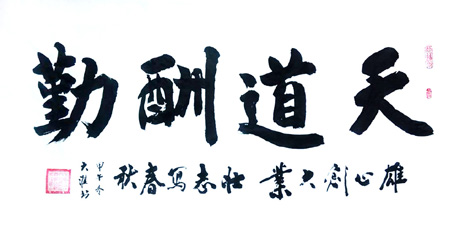 天道酬勤
雄心創大業 壯志寫春秋
甲午冬